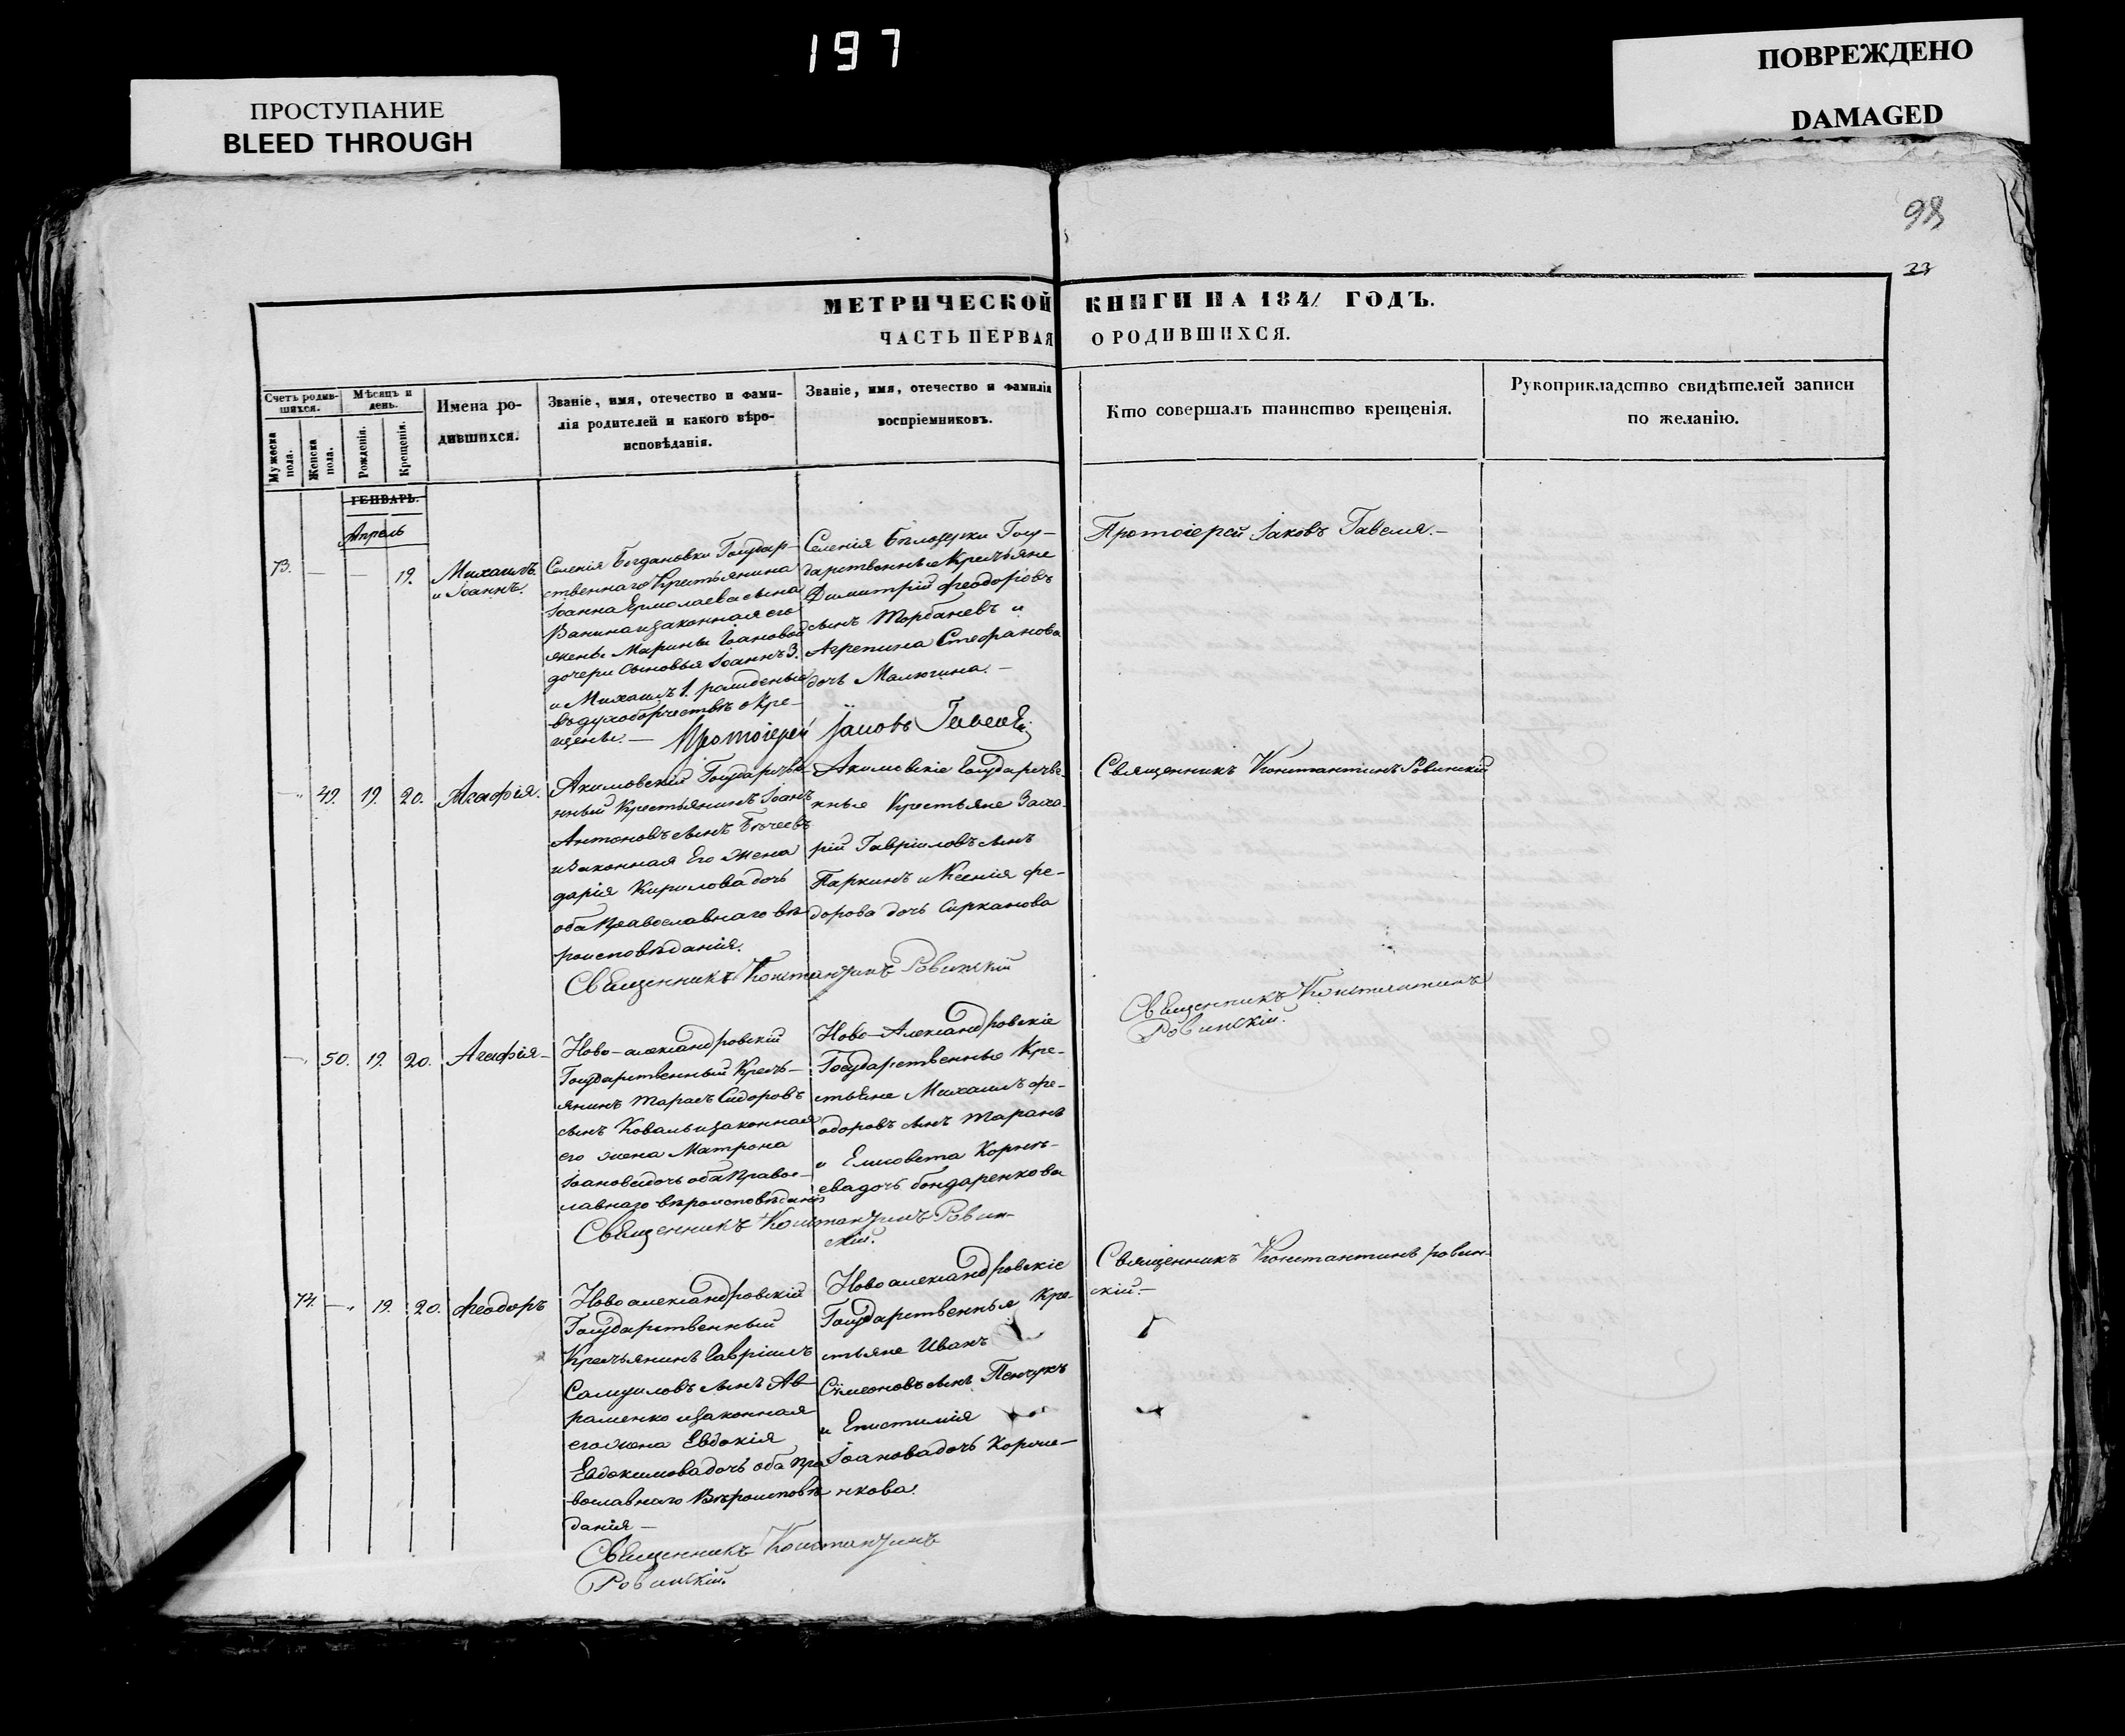 197
ПРОСТУПАНИЕ
BLEED THROUGH
ПОВРЕЖДЕНО
DAMAGED
98
23
МЕТРИЧЕСКОЙ КНИГИ НА 1841 ГОДЪ.
ЧАСТЬ ПЕРВАЯ О РОДИВШИХСЯ.
Счетъ родив-
шихся.
Мужеска
пола.
Женска
пола.
Мѣсяцъ и
день.
Рожденія.
Крещенія.
Имена ро-
дившихся.
Званіе, имя, отечество и фами-
лія родителей и какого вѣро-
исповѣданія.
Званіе, имя, отечество и фамилія
воспріемниковъ.
Кто совершалъ таинство крещенія.
Рукоприкладство свидѣтелей записи
по желанію.
ГЕНВАРЬ.
Апрель
73. — — 19.
Михаилъ
и Іоаннъ.
Селенія Богдановки Государ-
ственнаго Крестьянина
Іоанна Ермолаева сына
Ванина и законная его
жены Марины Іоановой
дочери сыновья Іоаннъ 3.
и Михаилъ 1. рожденые
въ духоборчествѣ окре-
щены. —
Селенія Бѣлозерки Госу-
дарственные Крестьяне
Димитрій Феодоровъ
сынъ Торбаневъ и
Агрепина Стефанова
дочь Малюгина. —
Протоіерей Іаковъ Гавеля. —
Протоіерей Іаковъ Гавеля
— 49. 19. 20. Агафія.
Акимовскій Государстве-
нный Крестьянинъ Іоанъ
Антоновъ сынъ Бычеевъ
и законная Его жена
дарія Кирилова дочь
оба Православнаго вѣ-
роисповѣданія.
Акимовскіе Государстве-
нные Крестьяне Заха-
рій Гавріиловъ сынъ
Паркинъ и Ксенія фе-
дорова дочь Сирканова
Священникъ Константинъ Ровинскій
Священникъ Константинъ Ровинскій
— 50. 19. 20. Агафія —
Ново-александровскій
Государственный Кресть-
янинъ Тарасъ Сидоровъ
сынъ Коваль и законная
его жена Матрона
Іоановa дочь оба Правос-
лавнаго вѣроисповѣданія
Ново-Александровскіе
Государственные Кре-
стьяне Михаилъ фе-
одоровъ сынъ Таранъ
и Елисовета Корнѣ-
ева дочь бондаренкова
Священникъ Константинъ
Ровинскій.
Священникъ Константинъ Ровин-
скій.
74. — 19. 20. Феодоръ
Новоалександровскій
Государственный
Крестьянинъ Гавріилъ
Самуиловъ сынъ Ав-
раменко и законная
его жена Евдокія
Евдокимова дочь оба Пра
вославнаго Вѣроисповѣ
данія —
Новоалександровскіе
Государственные Кре-
стьяне Иванъ
Сѵмеоновъ сынъ Пенчукъ
и Епистимія
Іоанова дочь Корже-
нкова.
Священникъ Константинъ ровин-
скій. —
Священникъ Константинъ
Ровинскій.